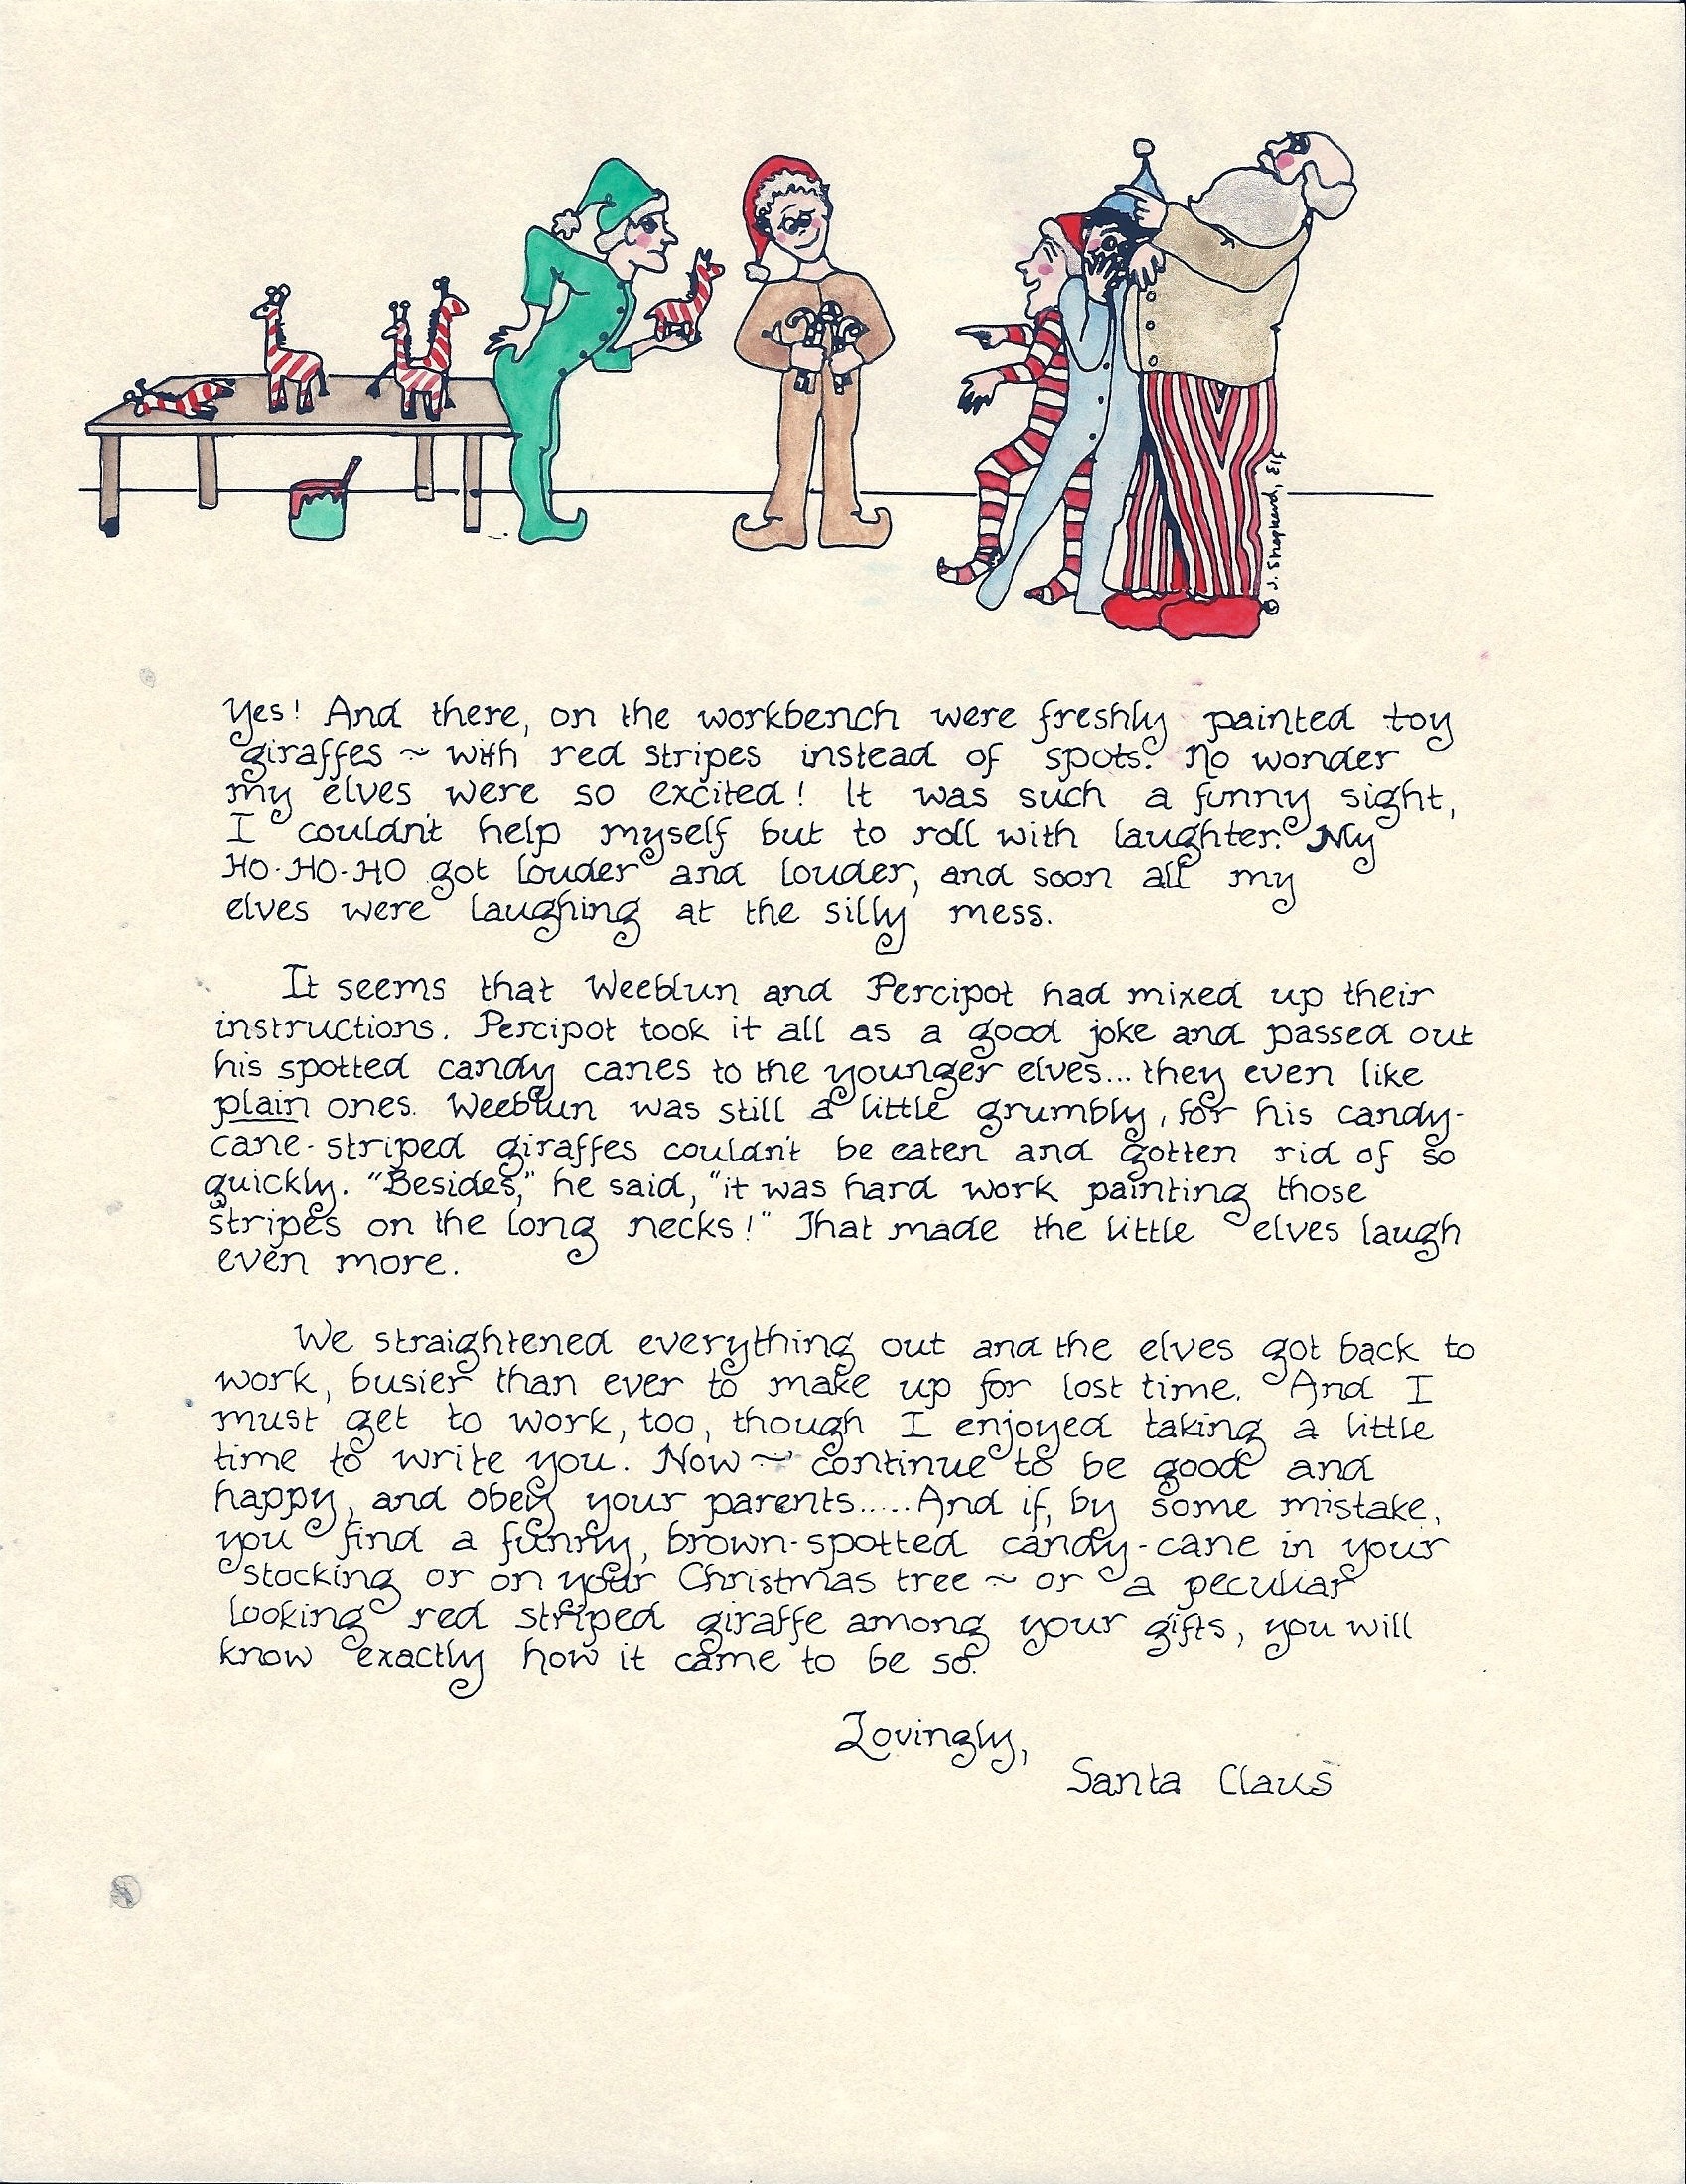 © J. Shepherd, Elf
Yes! And there, on the workbench were freshly painted toy
giraffes ~ with red stripes instead of spots. No wonder
my elves were so excited! It was such a funny sight,
I couldn't help myself but to roll with laughter. My
HO·HO·HO got louder and louder, and soon all my
elves were laughing at the silly mess.
It seems that Weeblun and Percipot had mixed up their
instructions. Percipot took it all as a good joke and passed out
his spotted candy canes to the younger elves... they even like
plain ones. Weeblun was still a little grumbly, for his candy-
cane-striped giraffes couldn't be eaten and gotten rid of so
quickly. "Besides," he said, "it was hard work painting those
stripes on the long necks!" That made the little elves laugh
even more.
We straightened everything out and the elves got back to
work, busier than ever to make up for lost time. And I
must get to work, too, though I enjoyed taking a little
time to write you. Now ~ continue to be good and
happy, and obey your parents.....And if, by some mistake,
you find a funny, brown-spotted candy-cane in your
stocking or on your Christmas tree ~ or a peculiar
looking red striped giraffe among your gifts, you will
know exactly how it came to be so.
Lovingly,
Santa Claus